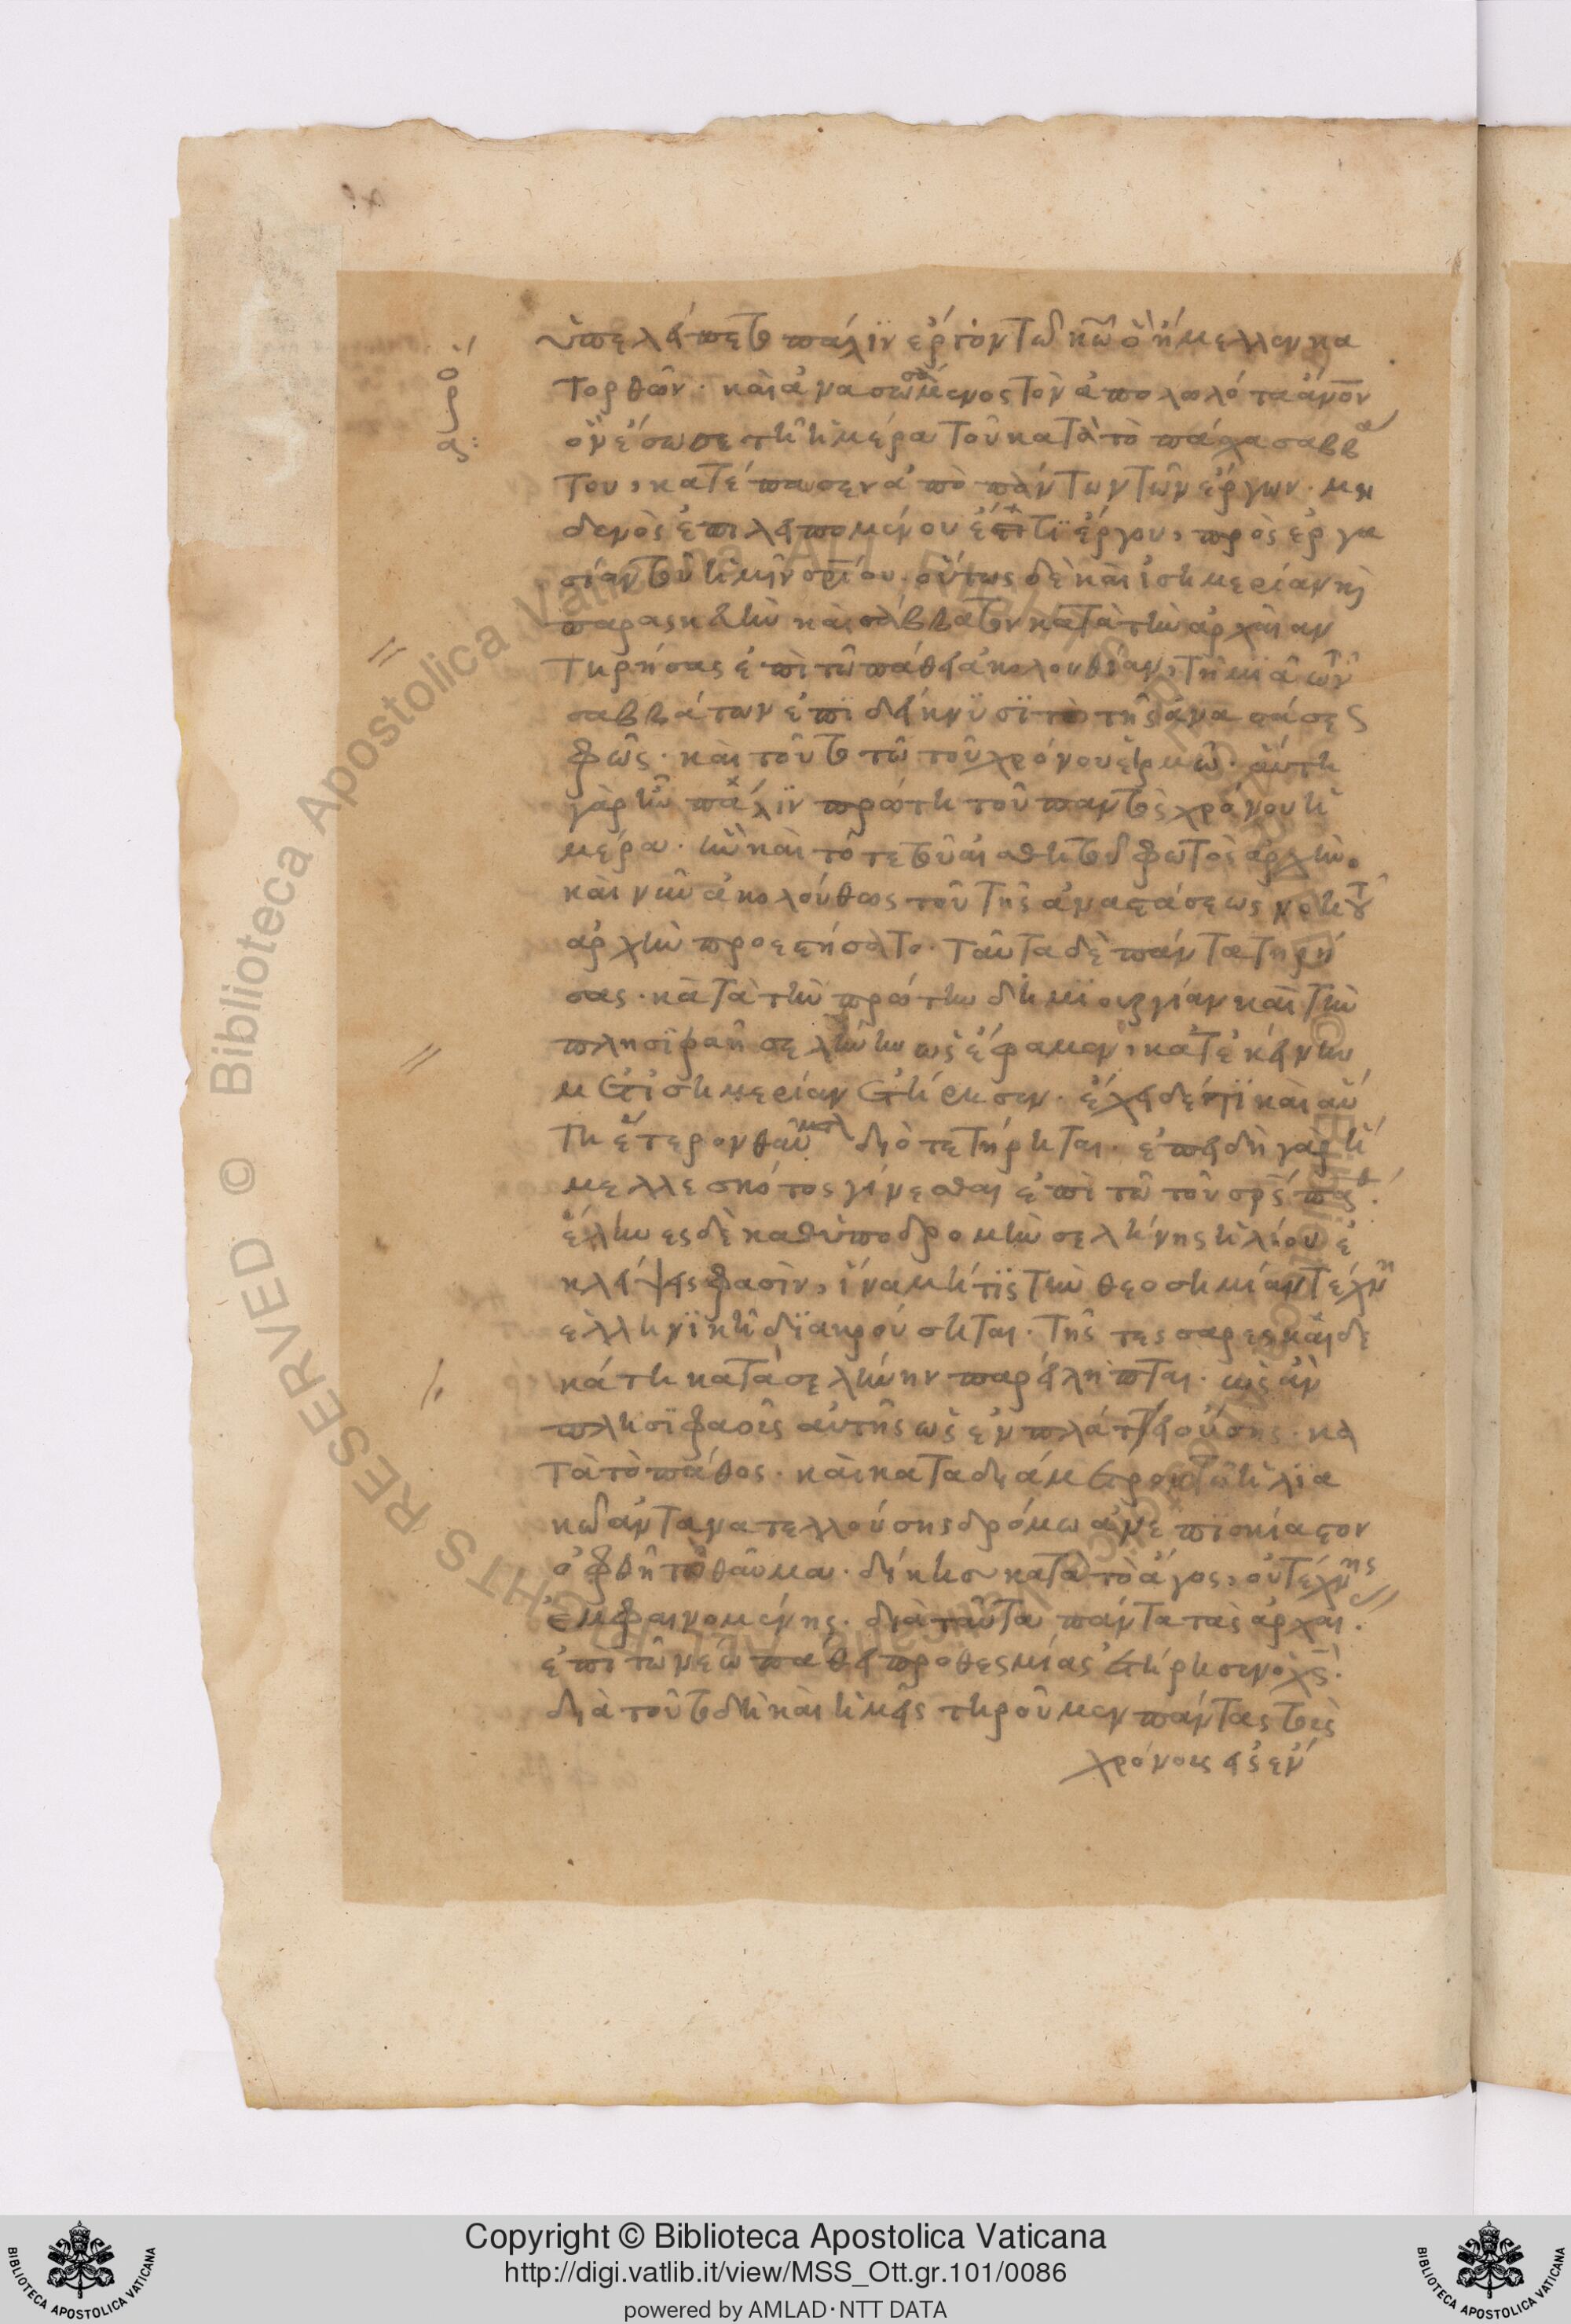 ὑπελείπετο πάλιν ἔργον τῷ κ̅ω̅ ὃ ἤμελλεν κα
τορθῶν. καὶ ἀνασωσάμενος τὸν ἀπολωλότα ἄν̅ο̅ν
ὃν ἔσωσε τῇ ἡμέρα τοῦ κατὰ τὸ πάσχα σαββά
του, κατέπαυσεν ἀπὸ πάντων τῶν ἔργων. μη
δενὸς ἐπιλειπομένου ἔτι ἔργου, πρὸς ἐργα
σίαν τοῦ ἡμῶν σ̅ρ̅ίου. οὕτως δὲ καὶ ἰσημερίαν κ
παρασκευὴν καὶ σάββατον κατὰ τὴν ἀρχαίαν
τηρήσας ἐπὶ τῷ πάθει ἀκολουθίαν, τῇ μιᾶ τῶν
σαββάτων ἐπιδείκνυσι τὸ τῆς ἀναστάσεως
φῶς. καὶ τοῦτο τῷ τοῦ χρόνου εἱρμῶ. αὕτη
γὰρ ἦν πάλιν πρώτη τοῦ παντὸς χρόνου ἡ
μέρα. ἣν καὶ τότε τοῦ αἰσθητοῦ φωτὸς ἀρχὴν.
καὶ νῦν ἀκολούθως τοῦ τῆς ἀναστάσεως νοητοῦ
ἀρχὴν προεστήσατο. ταῦτα δὲ πάντα τηρή
σας. κατὰ τὴν πρώτην δημιουργίαν καὶ τὴν
πλησιφαῆ σελήνην ὡς ἔφαμεν, κατ' ἐκείνην
μετ' ἰσημερίαν ἐτήρησεν. ἔχει δέ τι καὶ αὕ
τη ἕτερον θαῦμα διὸ τετήρηται. ἐπειδὴ γὰρ ἤ
μελλε σκότος γίνεσθαι ἐπὶ τῷ τοῦ σ̅ρ̅ς πάθ.
ἕλληνες δὲ καθ' ὑποδρομὴν σελήνης ἡλίου ἐ
κλείψεις φασὶν, ἵνα μή τις τὴν θεοσημίαν τέχνη
ἑλληνικῆ διακρούσηται. τῆς τεσσαρεσκαιδε
κάτη κατὰ σελήνην παρείληπται. ὡς ἂν
πλησιφαοῦς αὐτῆς ὡς ἐν πλάτει οὔσης. κα
τὰ τὸ πάθος. καὶ κατὰ διάμετρον τῷ ἡλια
κῷ ἀντανατελλούσης δρόμω ἀνεπισκίαστον
ὀφθῆ τὸ θαῦμα. δίκησιν κατὰ τὸ ἄγος, οὐ τέχνης
ἐμφαινομένης. διὰ ταῦτα πάντα τὰς ἀρχαι.
ἐπὶ τῷ νέω πάθει προθεσμίας ἐτήρησεν ὁ χ̅ς.
διὰ τοῦτο δὴ καὶ ἡμεῖς τηροῦμεν πάντας τοὺς
χρόνους εἰς ἓν
Copyright © Biblioteca Apostolica Vaticana
http://digi.vatlib.it/view/MSS_Ott.gr.101/0086
powered by AMLAD·NTT DATA